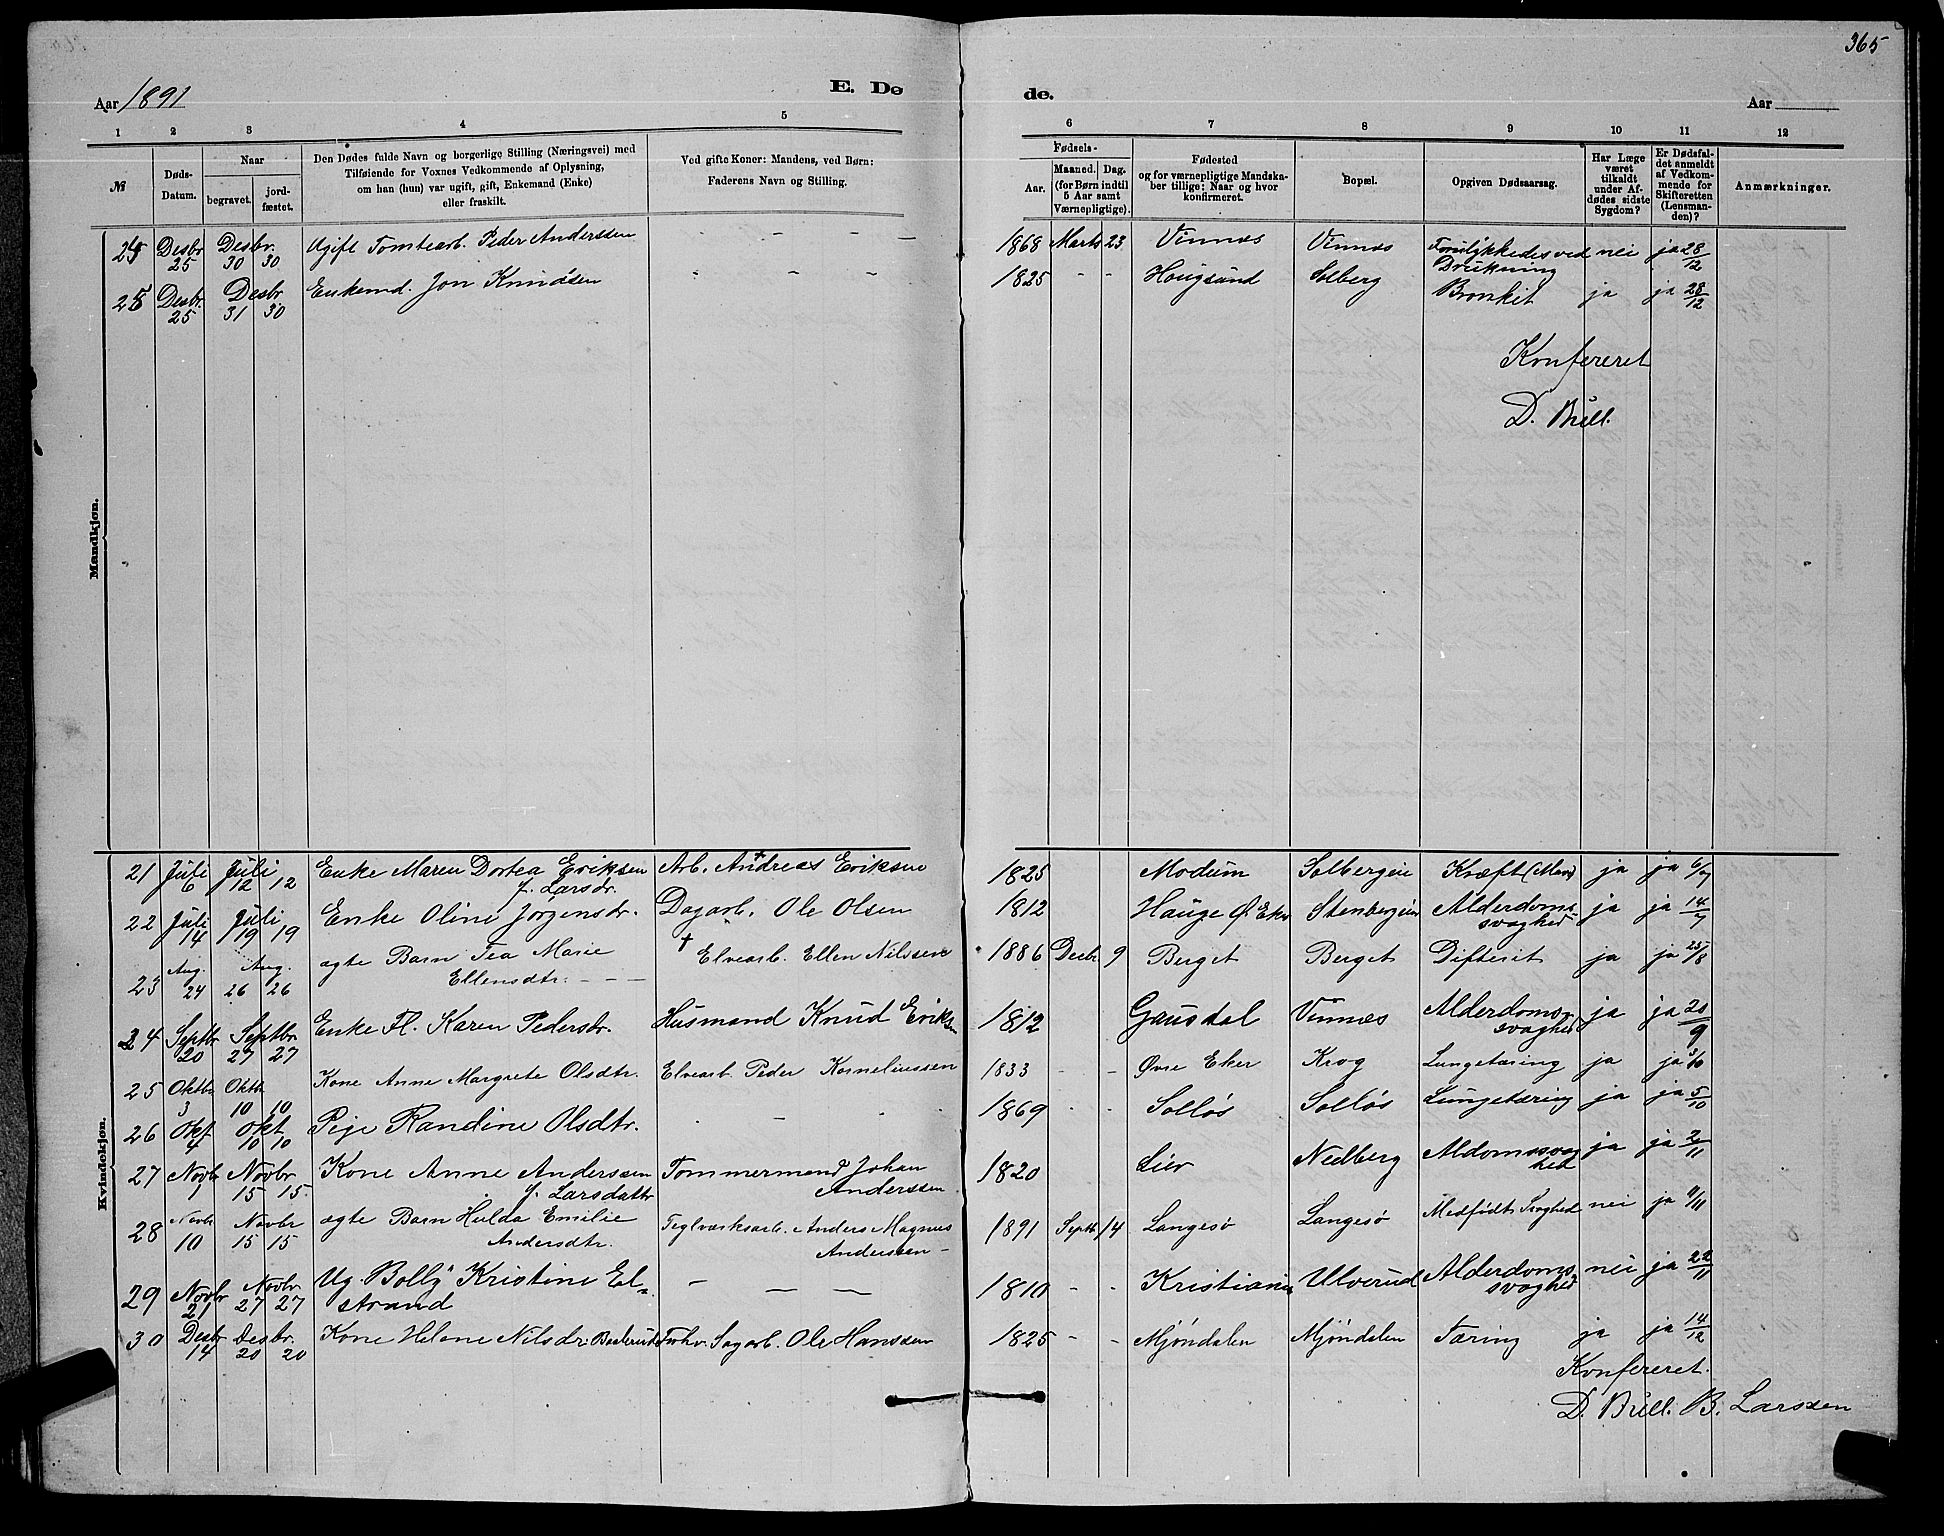 365
Aar 1891
E. Dø
de.
Aar
1 2 3 4 5 6 7 8 9 10 11 12
№
Døds-Datum.
Naar
begravet.
jord-fæstet.
Den Dødes fulde Navn og borgerlige Stilling (Næringsvei) med
Tilføiende for Voxnes Vedkommende af Oplysning,
om han (hun) var ugift, gift, Enkemand (Enke)
eller fraskilt.
Ved gifte Koner: Mandens, ved Børn:
Faderens Navn og Stilling.
Fødsels-
Aar.
Maaned. Dag.
(for Børn indtil
5 Aar samt
Værnepligtige).
Fødested
og for værnepligtige Mandska-
ber tillige: Naar og hvor
konfirmeret.
Bopæl.
Opgiven Dødsaarsag.
Har Læge
været
tilkaldt
under Af-
dødes sidste
Sygdom?
Er Dødsfal-
det anmeldt
af Vedkom-
mende for
Skifteretten
(Lensman-
den)?
Anmærkninger.
Mandkjøn.
24 Desbr 25 Desbr. 30 30 Ugift Tomtearb. Peder Anderssen - - - - 1868 Marts 23 Vinnæs Vinnæs Forulykkedes ved Drukning nei ja 28/12
25 Desbr 25 Desbr 31 30 Enkemd. Jon Knudsen - - - 1825 - - Hougsund Solberg Bronkit ja ja 28/12
Konfereret
D. Bull.
Kvindekjøn.
21 Juli 6 Juli 12 12 Enke Maren Dortea Eriksen f. Larsdr. Arb. Andreas † Eriksen 1825 Modum Solbergeie Kræft (Mave) ja ja 6/7
22 Juli 14 Juli 19 19 Enke Oline Jørgensdr. Dagarb. Ole Olsen 1812 Hauge Ø. Eker Stenbergeie Alderdoms-svaghed ja ja 14/7
23 Aug. 24 Aug. 26 26 ægte Barn Tea Marie Ellensdtr. - - - † Elvearb. Ellen Nilssen 1886 Decbr. 9 Berget Berget Difterit ja ja 25/8
24 Septbr 20 Septbr 27 27 Enke Fl. Karen Pedersdr. Husmand Knud Eriksen 1812 Gausdal Vinnæs Alderdoms-svaghed ja ja 20/9
25 Oktbr 3 Oktbr 10 10 Kone Anne Margrete Olsdtr. Elvearb. Peder Korneliussen 1833 - - Øvre Eker Krog Lungetæring ja ja 3/10
26 Okt 4 Okt 10 10 Pige Randine Olsdtr. - - 1869 - - Solløs Solløs Lungetæring ja ja 5/10
27 Novbr 1 Novbr 15 15 Kone Anne Anderssen f. Larsdattr Tømmermand Johan Anderssen 1820 Lier Nedberg Aldomssvaghed ja ja 2/11
28 Novbr 10 Novbr 15 15 ægte Barn Hulda Emilie Andersdtr. Teglværksarb. Anders Magnus Anderssen - 1891 Septb 14 Langesø Langesø Medfødt Svaghed nei ja 11/11
29 Novbr 21 Novbr. 27 27 Ug. Bolly Kristine Elstrand - - - 1810 - - Kristiania Ulverud Alderdoms-svaghed nei ja 22/11
30 Desbr 14 Desbr. 20 20 Kone Helene Nilsdr. Forhv. Sagarb. Ole Hanssen 1825 - - Mjøndalen Mjøndalen Tæring ja ja 14/12
Konfereret.
D. Bull. B. Larssen